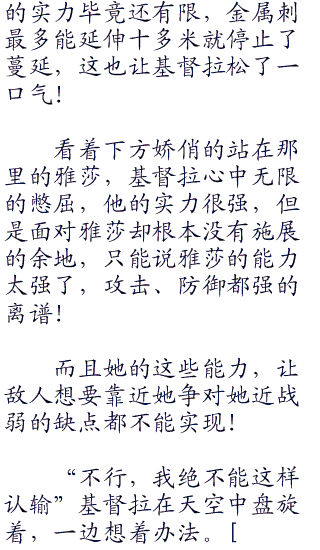 的实力毕竟还有限，金属刺
最多能延伸十多米就停止了
蔓延，这也让基督拉松了一
口气！
看着下方娇俏的站在那
里的雅莎，基督拉心中无限
的憋屈，他的实力很强，但
是面对雅莎却根本没有施展
的余地，只能说雅莎的能力
太强了，攻击、防御都强的
离谱！
而且她的这些能力，让
敌人想要靠近她争对她近战
弱的缺点都不能实现！
“不行，我绝不能这样
认输”基督拉在天空中盘旋
着，一边想着办法。[